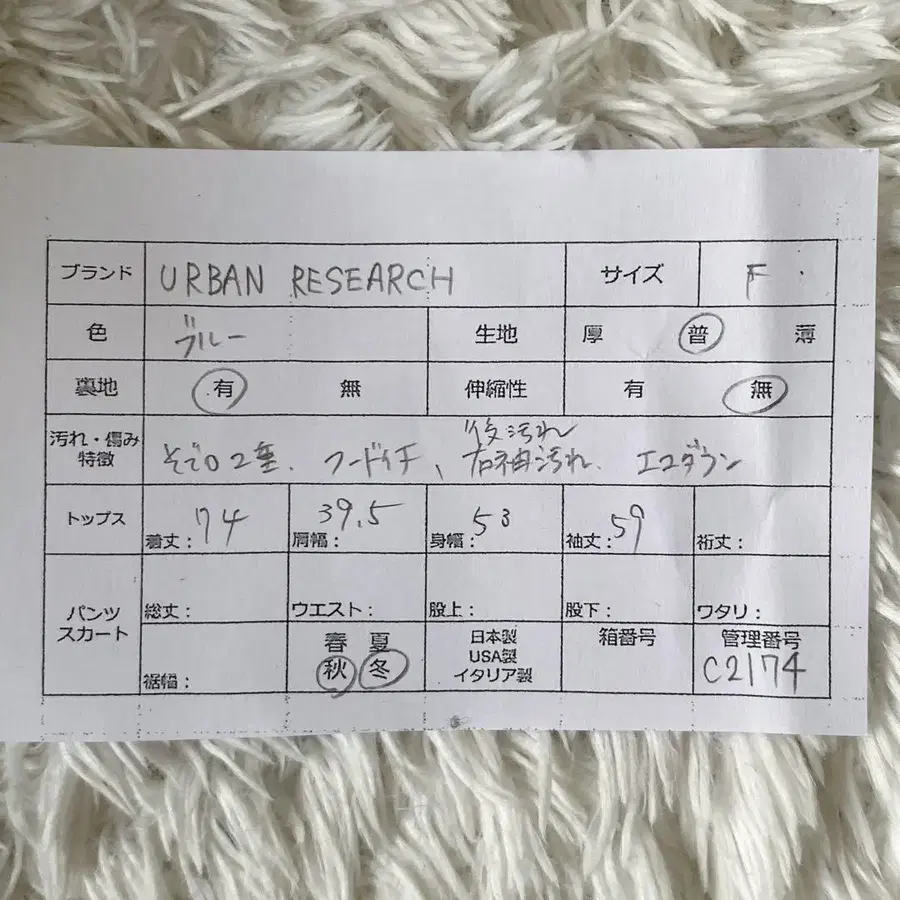 ブランド URBAN RESEARCH サイズ F
色 ブルー 生地 厚 普 薄
裏地 有 無 伸縮性 有 無
汚れ・傷み
特徴
後汚れ
そで口2重、フードイチ、右袖汚れ、エコダウン
トップス 着丈:74 肩幅:39.5 身幅:53 袖丈:59 裄丈:
パンツ
スカート
総丈: ウエスト: 股上: 股下: ワタリ:
裾幅:
春 夏
秋 冬
日本製
USA製
イタリア製
箱番号
管理番号
C2174